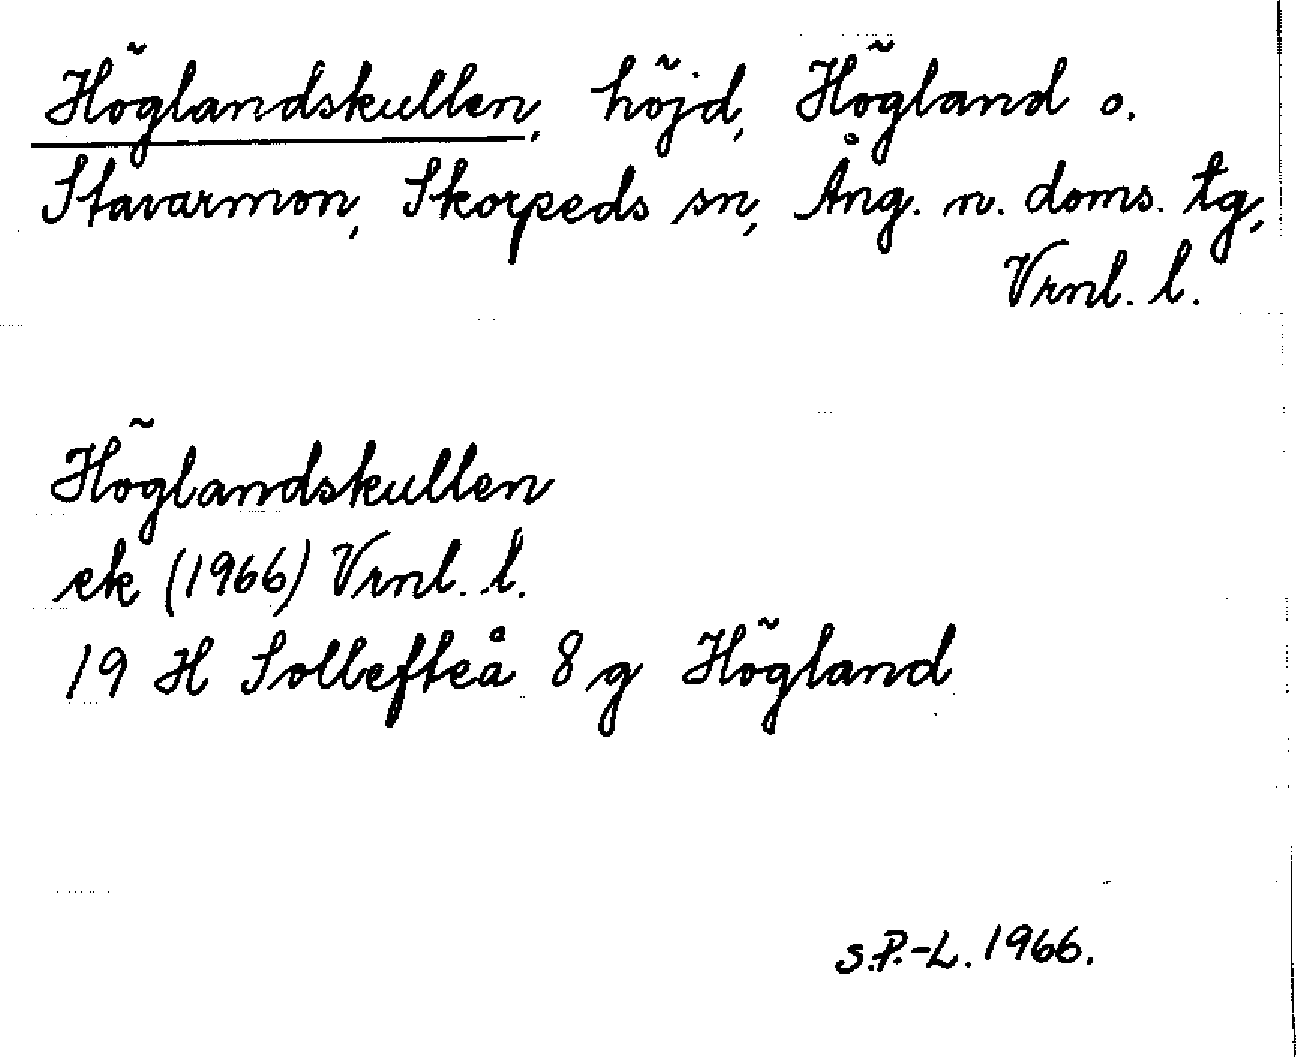 Höglandskullen, höjd, Högland o.
Stavarmon, Skorpeds sn, Ång. n. doms. tg,
Vrnl. l.
Höglandskullen
ek (1966) Vrnl. l.
19 H Sollefteå 8 g Högland
S.P.-L. 1966.